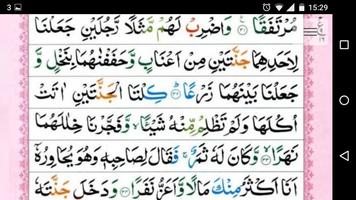 3 15:29
مُرْتَفَقًا ۝٣١ وَاضْرِبْ لَهُمْ مَّثَلًا رَّجُلَيْنِ جَعَلْنَا
لِاَحَدِهِمَا جَنَّتَيْنِ مِنْ اَعْنَابٍ وَّحَفَفْنٰهُمَا بِنَخْلٍ وَّ
جَعَلْنَا بَيْنَهُمَا زَرْعًا ۝٣٢ كِلْتَا الْجَنَّتَيْنِ اٰتَتْ
اُكُلَهَا وَلَمْ تَظْلِمْ مِّنْهُ شَيْـًٔا وَّفَجَّرْنَا خِلٰلَهُمَا
نَهَرًا ۝٣٣ وَّكَانَ لَهٗ ثَمَرٌ فَقَالَ لِصَاحِبِهٖ وَهُوَ يُحَاوِرُهٗ
اَنَا اَكْثَرُ مِنْكَ مَالًا وَّاَعَزُّ نَفَرًا ۝٣٤ وَدَخَلَ جَنَّتَهٗ